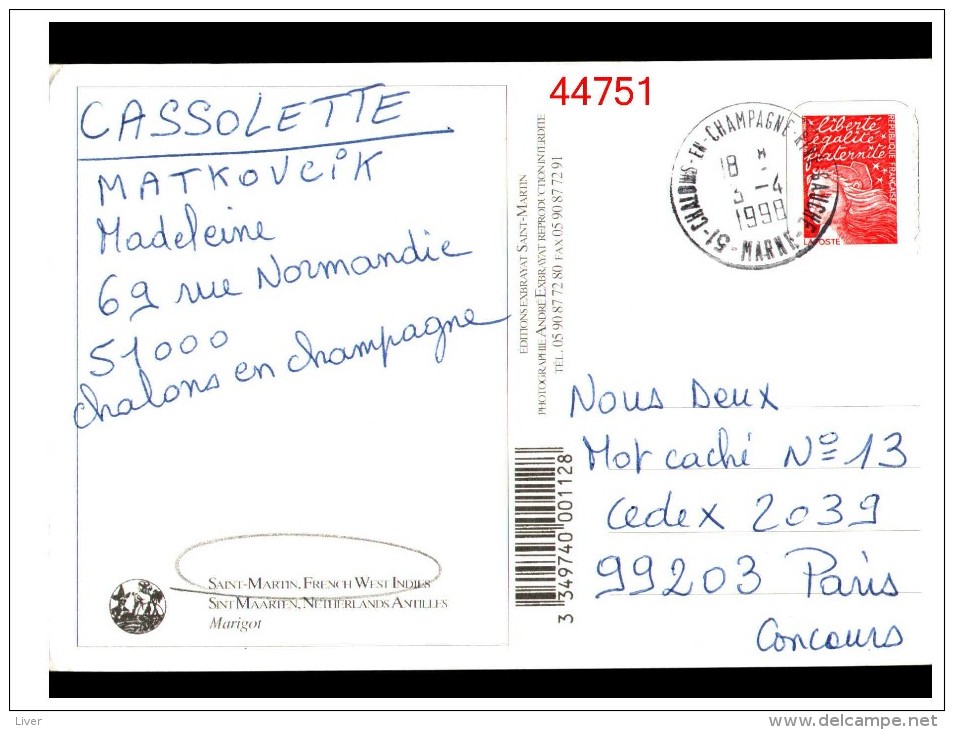 44751
CASSOLETTE
MATKOVCIK
Madeleine
69 rue Normandie
51000
chalons en champagne
SAINT-MARTIN, FRENCH WEST INDIES
SINT MAARTEN, NETHERLANDS ANTILLES
Marigot
EDITIONS EXBRAYAT SAINT-MARTIN
PHOTOGRAPHIE ANDRÉ EXBRAYAT REPRODUCTION INTERDITE
TÉL. 05 90 87 72 80 FAX 05 90 87 72 91
3 349740 001128
51-CHALONS-EN-CHAMPAGNE-
MARNE
18 H
3-4
1998
liberté
égalité
fraternité
RÉPUBLIQUE FRANÇAISE
LA POSTE
Nous Deux
Mot caché Nº 13
Cedex 2039
99203 Paris
Concours
Liver
www.delcampe.net